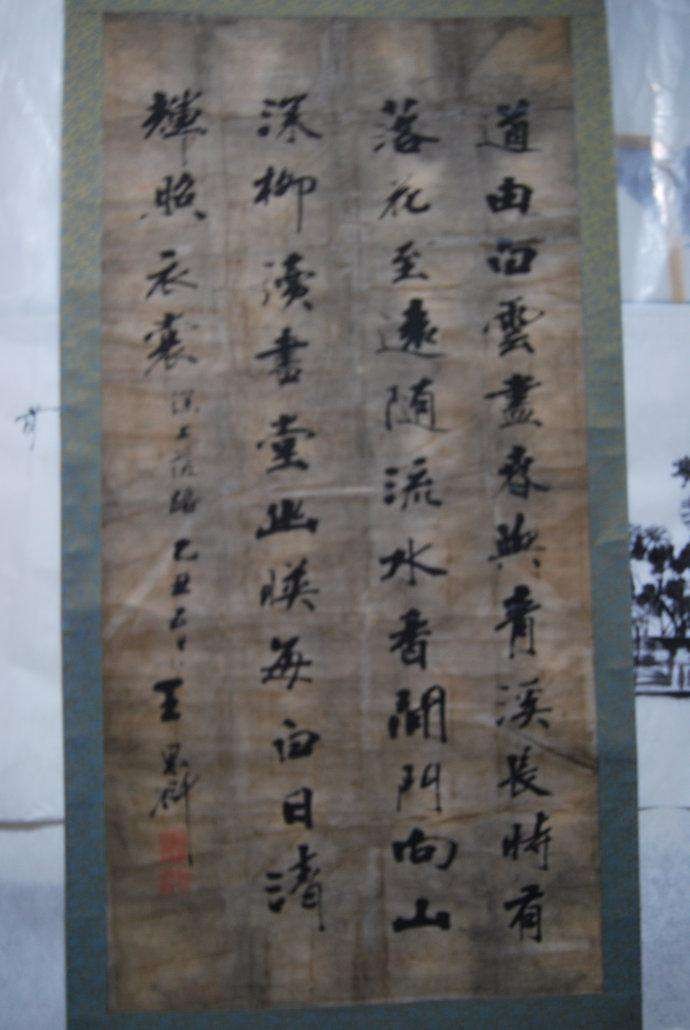 道由白雲盡春與青溪長時有
落花至遠随流水香閒門向山
深柳讀書堂幽映每白日清
輝照衣裳 深上落路 己丑 王